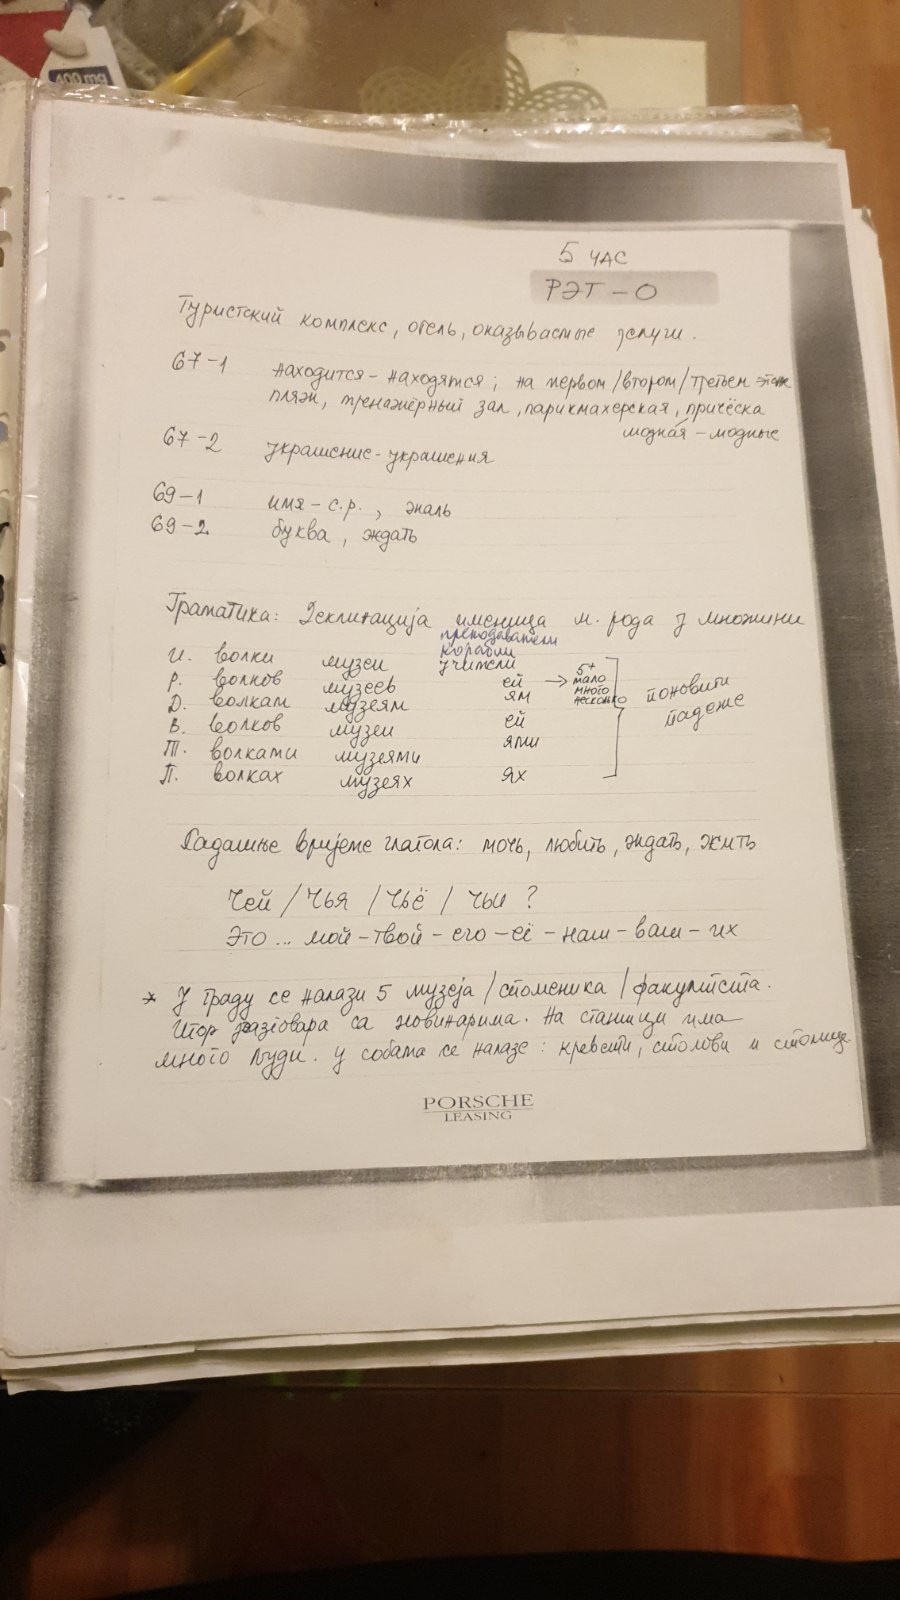 400 mg
5 ЧАС
РЭТ - О
Туристский комплекс, отель, оказываемые услуги.
67-1 находится - находятся; на первом/втором/третьем этаже
пляж, тренажёрный зал, парикмахерская, причёска
модная - модные
67-2 украшение - украшения
69-1 имя - с.р., жаль
69-2 буква, ждать
Граматика: Деклинација именица м. рода у множини
преподаватели
корабли
И. волки музеи учители
Р. волков музеев ей → 5+
мало
много
несколько
Д. волкам музеям ям
В. волков музеи ей
Т. волками музеями ями
П. волках музеях ях
поновити
падеже
Садашње вријеме глагола: мочь, любить, ждать, жить
Чей / Чья / Чьё / Чьи ?
Это ... мой - твой - его - её - наш - ваш - их
* У граду се налази 5 музеја / споменика / факултета.
Игор разговара са новинарима. На станици има
много људи. У собама се налазе: кревети, столови и столице.
PORSCHE
LEASING